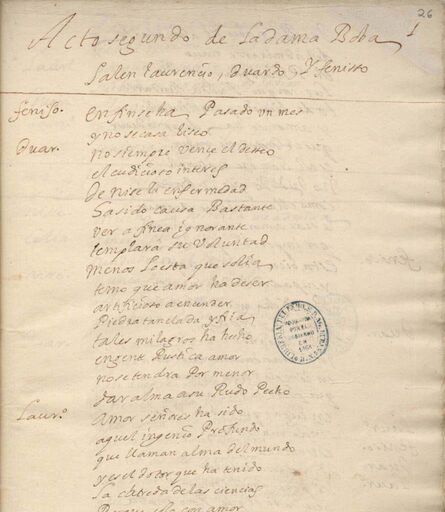 26
1
Acto segundo de la dama Boba
Salen laurencio, Duardo, Y feniso
feniso. en fin se ha Pasado un mes
y no se casa liseo
Duar. no siempre vence el desseo
el cudicioso interes
de nise la enfermedad
ha sido causa Bastante
ver a finea ignorante
templara su voluntad
menos lo esta que solia
temo que amor ha de ser
artificioso a encender
Piedra tan elada y fria
tales milagros ha hecho
en gente Rustica amor
no se tendra Por menor
dar alma a su Rudo Pecho
Laur.º Amor señores ha sido
aquel ingenio Profundo
que llaman alma del mundo
y es el dotor que ha tenido
la catreda de las ciencias
Porque solo con amor